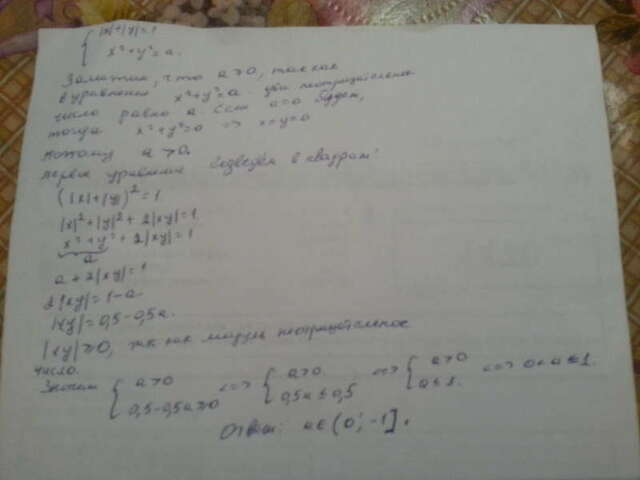 |x|+|y|=1
x²+y²=a.
Заметим, что a>0, так как
в уравнении x²+y²=a два неотрицательное
число равно a. Если a=0 будет,
тогда x²+y²=0 => x=y=0
поэтому a>0.
первое уравнение возведём в квадрат:
(|x|+|y|)²=1
|x|²+|y|²+2|xy|=1
x²+y²+2|xy|=1
a
a+2|xy|=1
2|xy|=1-a
|xy|=0,5-0,5a.
|xy|≥0, так как модуль неотрицательное
число.
Значит { a>0 <=> { a>0 <=> { a>0 <=> 0<a≤1.
0,5-0,5a≥0 0,5a≤0,5 a≤1.
Ответ: a∈(0;-1].